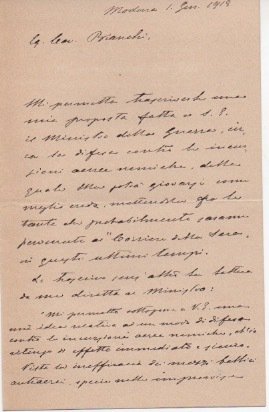 Modena 1. Gen. 1918
Eg. Cav. Bianchi,
Mi permetto trascriverle una
mia proposta fatta a S. E.
il Ministro della Guerra, cir-
ca la difesa contro le incur-
sioni aeree nemiche, della
quale Ella potrà giovarsi come
meglio creda, mettendola fra le
tante che probabilmente saranno
pervenute al "Corriere della Sera"
in questi ultimi tempi.
Le trascrivo senz'altro la lettera
da me diretta al Ministro:
"Mi permetto sottoporre a V. E. una
idea relativa ad un modo di difesa
contro le incursioni aeree nemiche,
di effetto immediato e sicuro.
Vista la inefficacia dei mezzi bellici
antiaerei, specie nelle